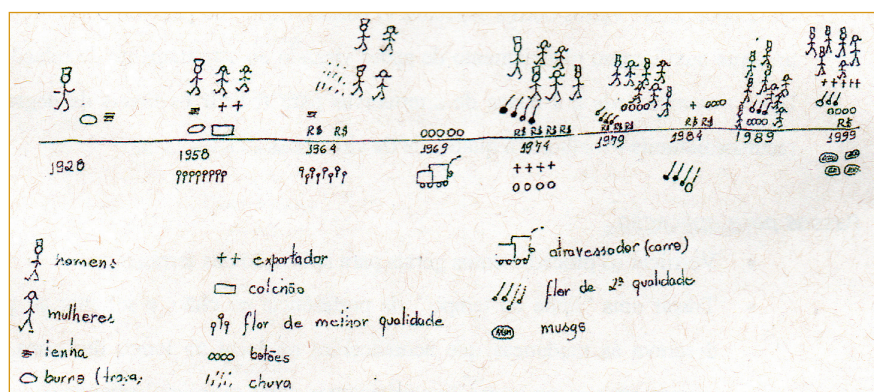 R$ R$
R$ R$ R$ R$
R$ R$ R$
R$ R$
R$
1928
1958
1964
1969
1974
1979
1984
1989
1999
homens
mulheres
lenha
++ exportador
colchão
flor de melhor qualidade
botões
chuva
atravessador (carro)
flor de 2ª qualidade